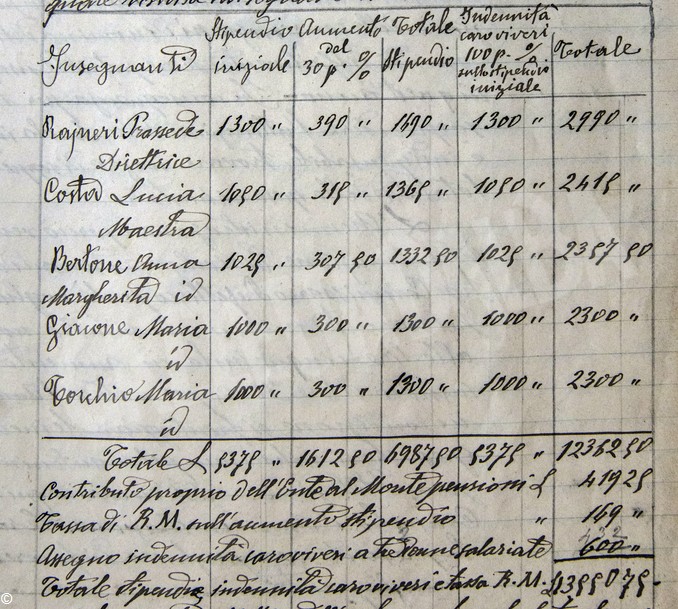 Stipendio Aumento Totale Indennità
caro viveri
Insegnanti iniziale del 30 p. % Stipendio 100 p. % sullo stipendio iniziale Totale
Rajneri Prassede 1300 " 390 " 1690 " 1300 " 2990 "
Direttrice
Costa Lucia 1050 " 315 " 1365 " 1050 " 2415 "
Maestra
Bertone Anna 1025 " 307 50 1332 50 1025 " 2357 50
Margherita id
Giacone Maria 1000 " 300 " 1300 " 1000 " 2300 "
id
Torchio Maria 1000 " 300 " 1300 " 1000 " 2300 "
id
Totale L 5375 " 1612 50 6987 50 5375 " 12362 50
Contributo proprio dell'Ente al Monte pensioni L 419 25
Tassa di R. M. sull'aumento stipendio " 169 "
Assegno indennità caroviveri a tre Persone salariate 600 "
Totale stipendi e indennità caroviveri e tassa R. M. L 13550 75
©